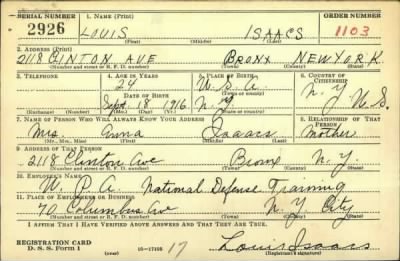 SERIAL NUMBER 1. NAME (Print) ORDER NUMBER
2926 LOUIS ISAACS 1103
(First) (Middle) (Last)
2. ADDRESS (Print)
2118 CLINTON AVE BRONX NEW YORK
(Number and street or R. F. D. number) (Town) (County) (State)
3. TELEPHONE 4. AGE IN YEARS 5. PLACE OF BIRTH 6. COUNTRY OF CITIZENSHIP
24 U.S.A. N.Y.
DATE OF BIRTH (Town or county)
Sept. 18 1916 N.Y U.S.
(Exchange) (Number) (Mo.) (Day) (Yr.) (State or country)
7. NAME OF PERSON WHO WILL ALWAYS KNOW YOUR ADDRESS 8. RELATIONSHIP OF THAT PERSON
Mrs. Anna Isaacs mother
(Mr., Mrs., Miss) (First) (Middle) (Last)
9. ADDRESS OF THAT PERSON
2118 Clinton Ave Bronx N.Y.
(Number and street or R. F. D. number) (Town) (County) (State)
10. EMPLOYER'S NAME
W. P. A. National Defense Training
11. PLACE OF EMPLOYMENT OR BUSINESS
70 Columbus Av N.Y City
(Number and street or R. F. D. number) (Town) (County) (State)
I AFFIRM THAT I HAVE VERIFIED ABOVE ANSWERS AND THAT THEY ARE TRUE.
REGISTRATION CARD
D. S. S. Form 1 (over) 16—17105 17 Louis Isaacs
(Registrant's signature)